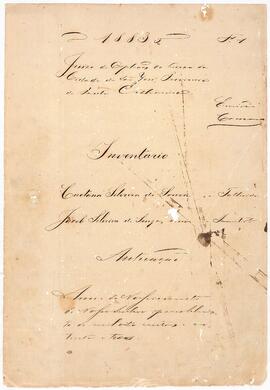 1883 Fl 1
Juizo de Orphãos do termo da
Cidade de São José, Provincia
de Santa Catharina
Escrivão
Inventario
Caetana Silveira de Souza Fallecida
Jacob Silveira de Souza Inventariante
Autuação
Anno do Nascimento
de Nosso Senhor Jesus Christo
de mil oito centos e oi
tenta e tres